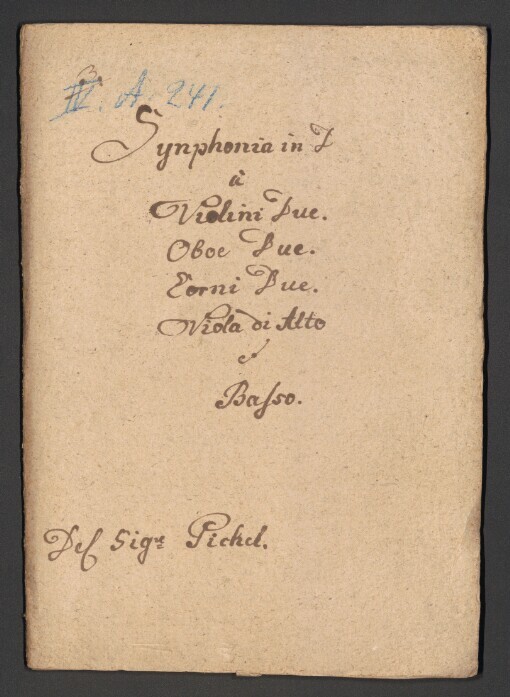 IV. A. 241.
Synphonia in D
à
Violini Due.
Oboe Due.
Corni Due.
Viola di Alto
e
Baſso.
Del Sigr Pichel.